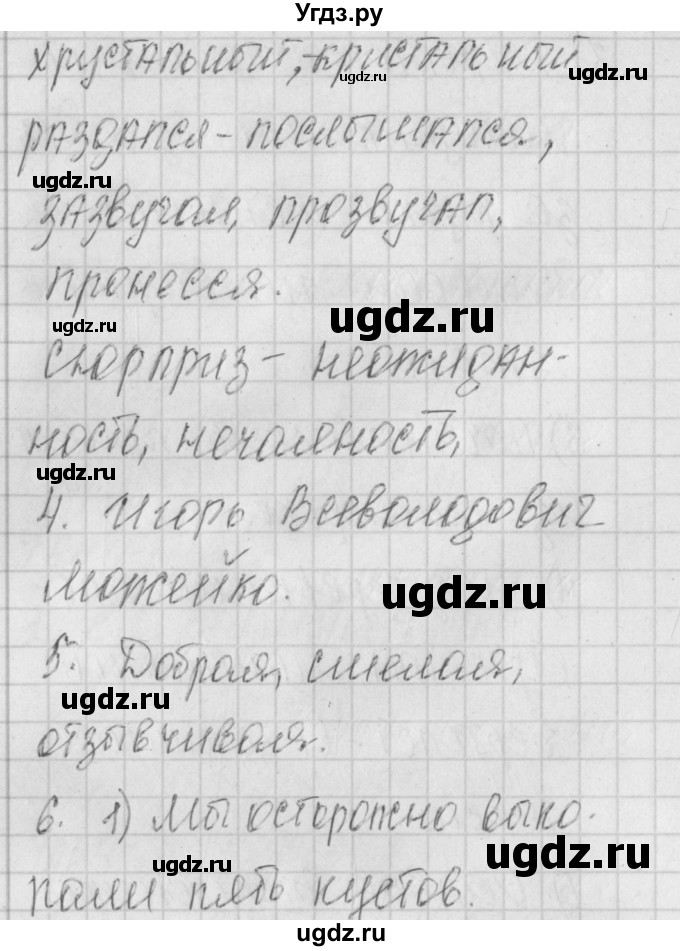 Угдз.ру
хрустальный, -кристальный
ugdz.ru
ugdz.ru
раздался - послышался,
ugdz.ru
зазвучал, прозвучал,
пронесся.
ugdz.ru
ugdz.ru
Сюрприз - неожидан-
ность, нечаянность,
ugdz.ru
4. Игорь Всеволодович
Можейко.
ugdz.ru
5. Добрая, смелая,
ugdz.ru
отзывчивая.
6. 1) Мы осторожно выко-
ugdz.ru
ugdz.ru
пали пять кустов.
ugdz.ru